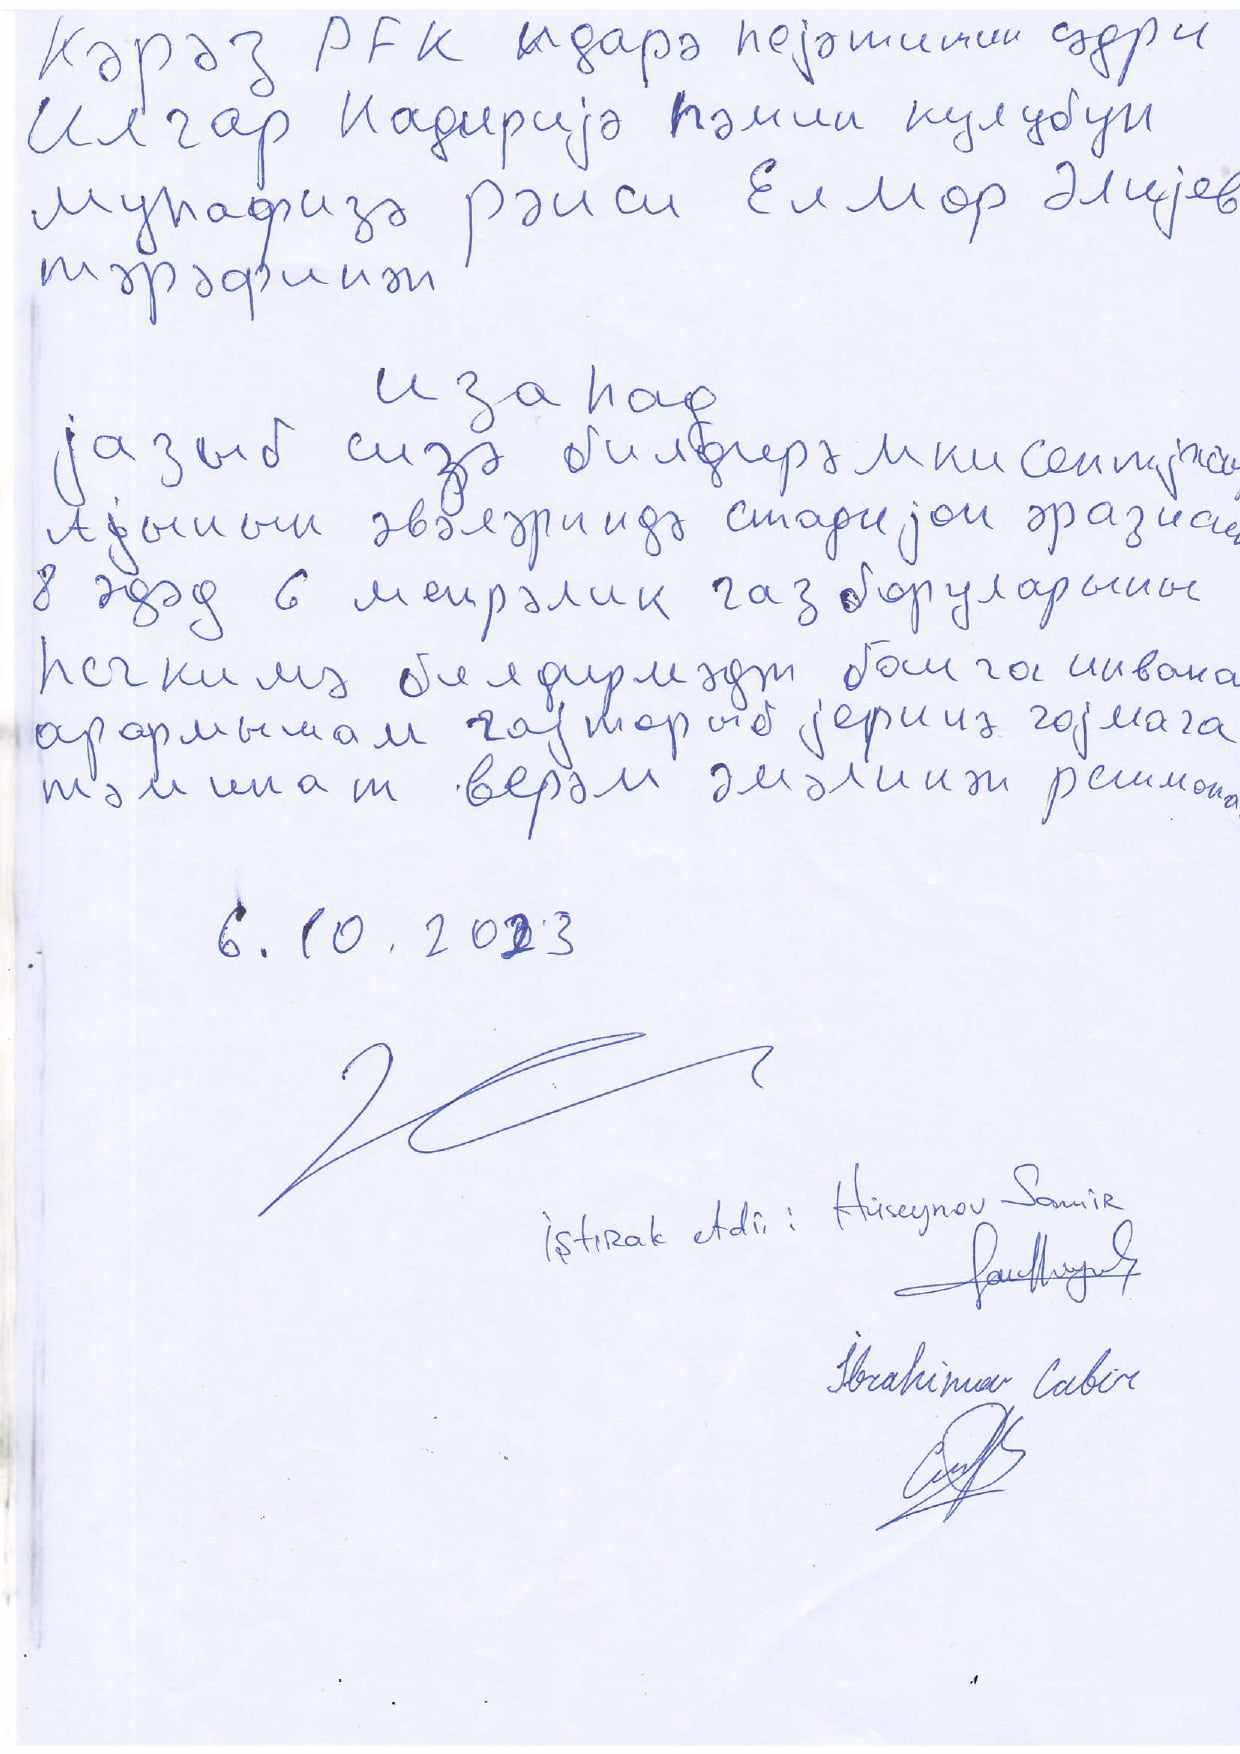 Кәрәз PFK идарә һејәтинин сәдри
Илгар Надирија һәмин кулубун
муһафизә рәиси Елмар Әлијев
тәрәфинән
изаһад
јазыб сизә билдирәмки
Ајынын әвәләриндә стадијон әразиси
8 әдәд 6 метрәлик газ боруларыны
һечкимә билдирмәдән башга
арармышам гајтарыб јеринә гојмага
тәминат верәм әмәлинән
6.10.2023
İştirak etdi: Hüseynov Samir
İbrahimov Cabir